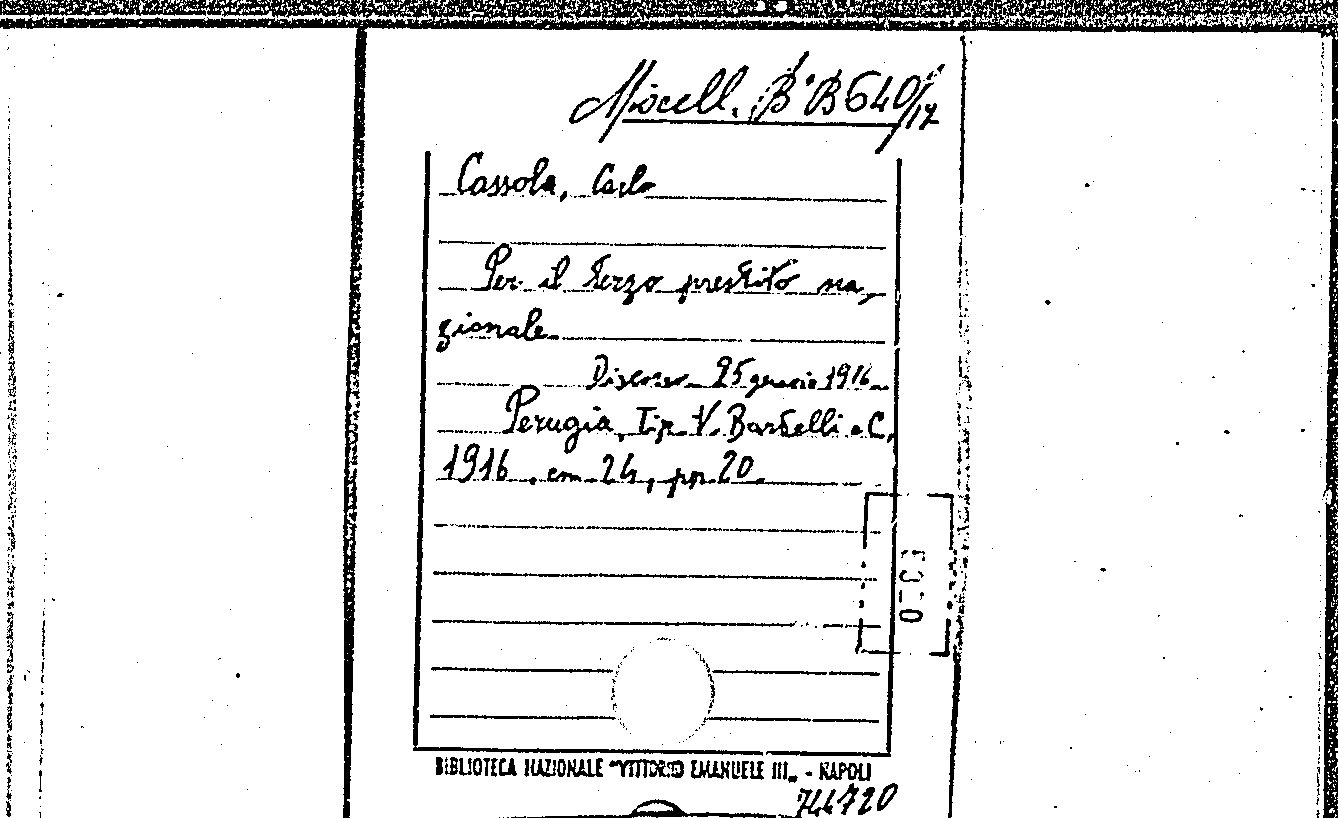 Miscell. B. B 640/17
Cassola, Carlo
Per il terzo prestito na,
zionale.
Discorso 25 gennaio 1916.
Perugia, Tip. V. Bartelli e C.,
1916, cm 24, pp. 20.
BIBLIOTECA NAZIONALE "VITTORIO EMANUELE III„ - NAPOLI